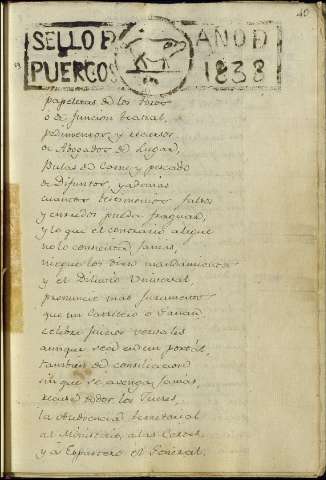 40
SELLO D AÑO D
PUERCOS 1838
papeletas de los toros
o de funcion teatral,
pedimentos y recursos
de Abogados de Lugar,
Bulas de Carne y pescado
de Difuntos, y ademas
cuantos testimonios falsos
y enredos pueda fraguar,
y lo que el contrario alegue
no lo consienta jamas,
niegue los diez mandamientos
y el Diluvio Universal
pronuncie mas juramentos
que un Carretero o
celebre juicios verbales
aunque sea en un portal,
tambien de conciliacion
sin que se avenga jamas,
recuse todos los Jueces,
la Audiencia territorial
al Ministerio, a las Cortes
y á Espartero el General.